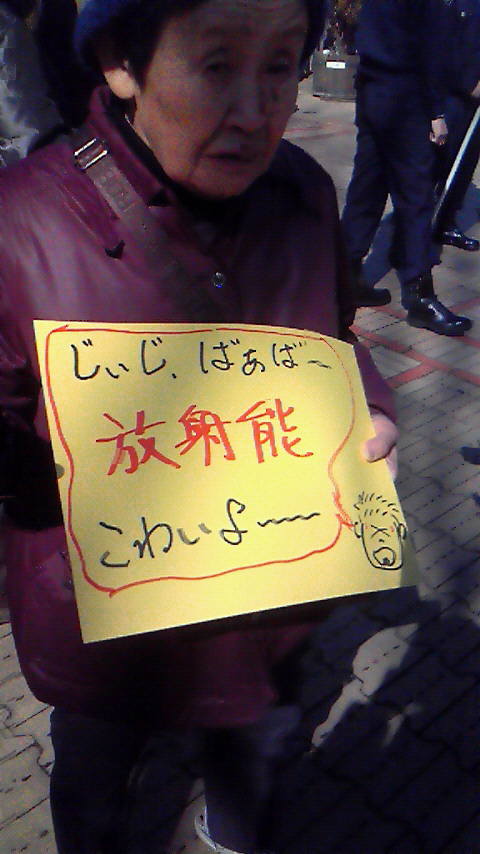 じぃじ、ばぁば〜
放射能
こわいよ〜〜